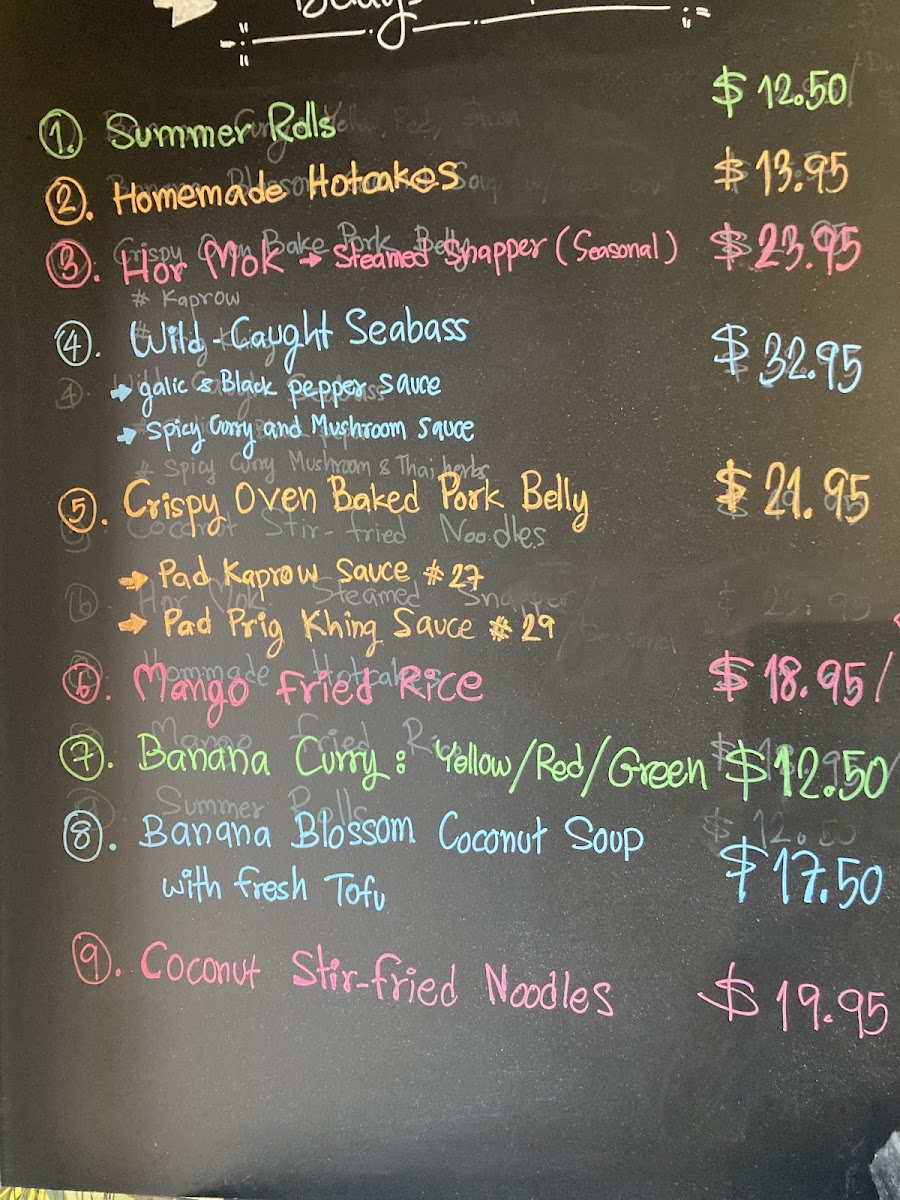 ① Summer Rolls $12.50/
②. Homemade Hotcakes $13.95
③. Hor Mok → Steamed Snapper (Seasonal) $23.95
# Kaprow
④. Wild-Caught Seabass $32.95
→ galic & Black pepper sauce
→ Spicy Curry and Mushroom sauce
# Spicy Curry Mushroom & Thai herbs
⑤. Crispy Oven Baked Pork Belly $21.95
Coconut Stir-fried Noodles
→ Pad Kaprow Sauce #27
Hor Mok Steamed Snapper
→ Pad Prig Khing Sauce #29
⑥. Mango Fried Rice $18.95/
⑦. Banana Curry: Yellow/Red/Green $12.50/
Summer Rolls $12.50
⑧. Banana Blossom Coconut Soup $17.50
with fresh Tofu
⑨. Coconut Stir-fried Noodles $19.95